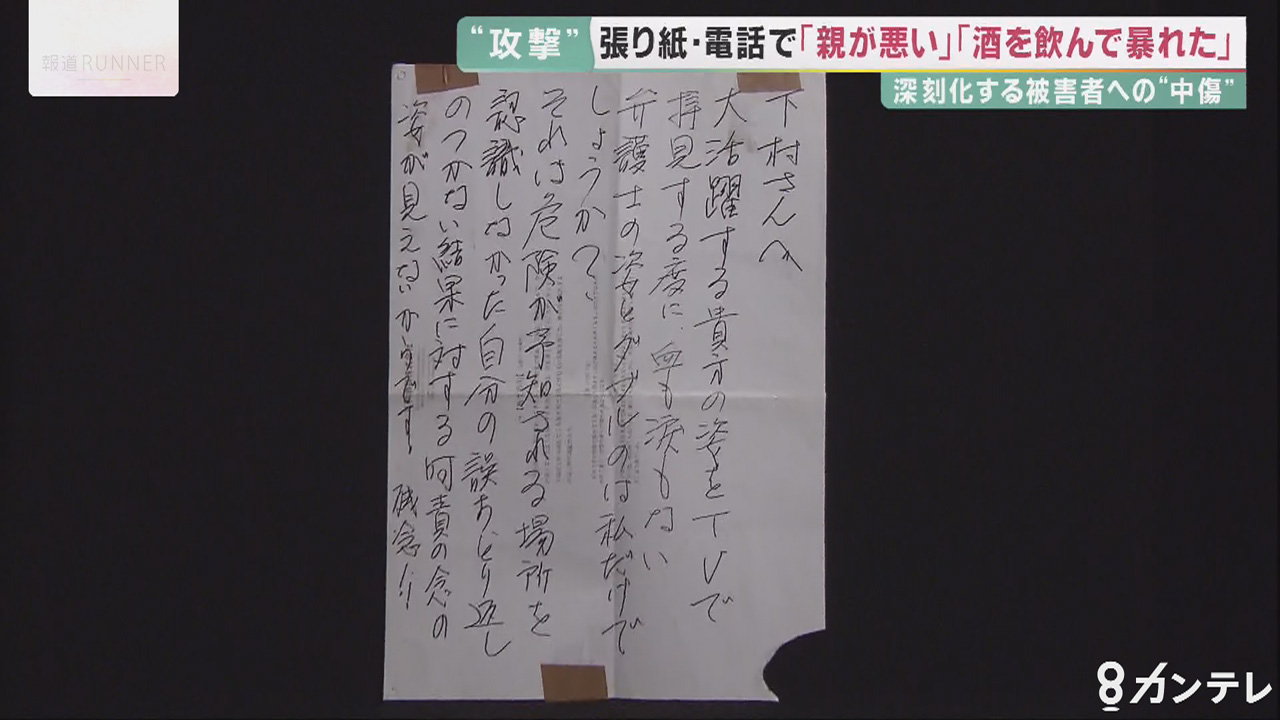 報道RUNNER
“攻撃”
張り紙・電話で「親が悪い」「酒を飲んで暴れた」
深刻化する被害者への“中傷”
下村さんへ
大活躍する貴方の姿をTVで
拝見する度に、血も涙もない
弁護士の姿とダブルのは私だけで
しょうか?、
それは危険が予知される場所を
認識しなかった自分の誤ちとり返し
のつかない結果に対する呵責の念の
姿が見えないから 残念!!
8カンテレ